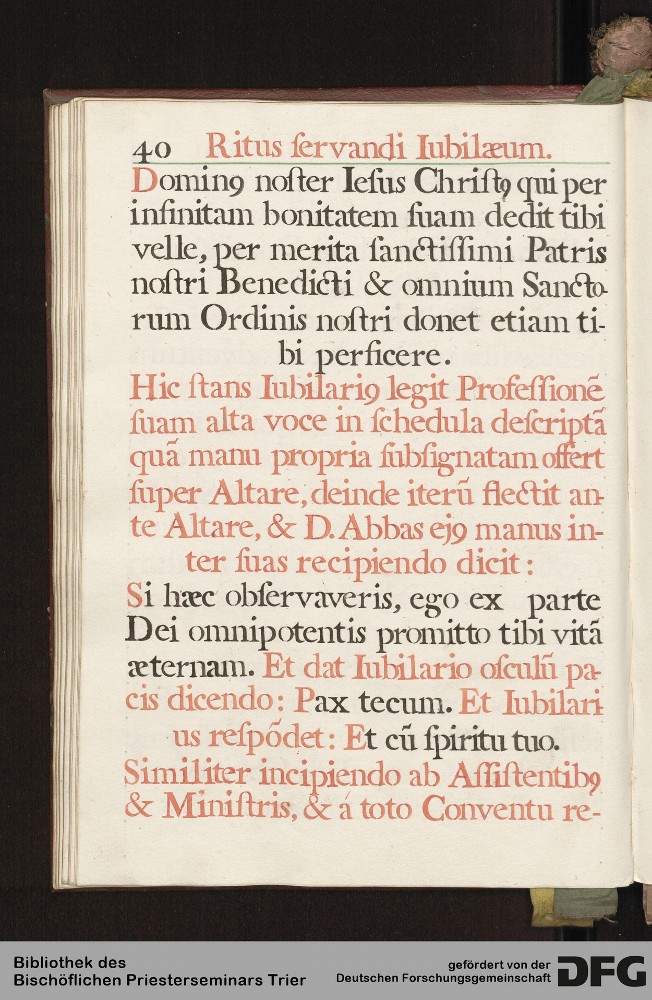 40 Ritus ſervandi Iubilæum.
Dominꝰ noſter Ieſus Chriſtꝰ qui per
infinitam bonitatem ſuam dedit tibi
velle, per merita ſanctiſſimi Patris
noſtri Benedicti & omnium Sancto-
rum Ordinis noſtri donet etiam ti-
bi perficere.
Hic ſtans Iubilariꝰ legit Profeſſionẽ
ſuam alta voce in ſchedula deſcriptã
quã manu propria ſubſignatam offert
ſuper Altare, deinde iterũ flectit an-
te Altare, & D. Abbas ejꝰ manus in-
ter ſuas recipiendo dicit:
Si hæc obſervaveris, ego ex parte
Dei omnipotentis promitto tibi vitã
æternam. Et dat Iubilario oſculũ pa-
cis dicendo: Pax tecum. Et Iubilari-
us reſpõdet: Et cũ ſpiritu tuo.
Similiter incipiendo ab Aſſiſtentibꝰ
& Miniſtris, & á toto Conventu re-
Bibliothek des
Bischöflichen Priesterseminars Trier
gefördert von der
Deutschen Forschungsgemeinschaft
DFG